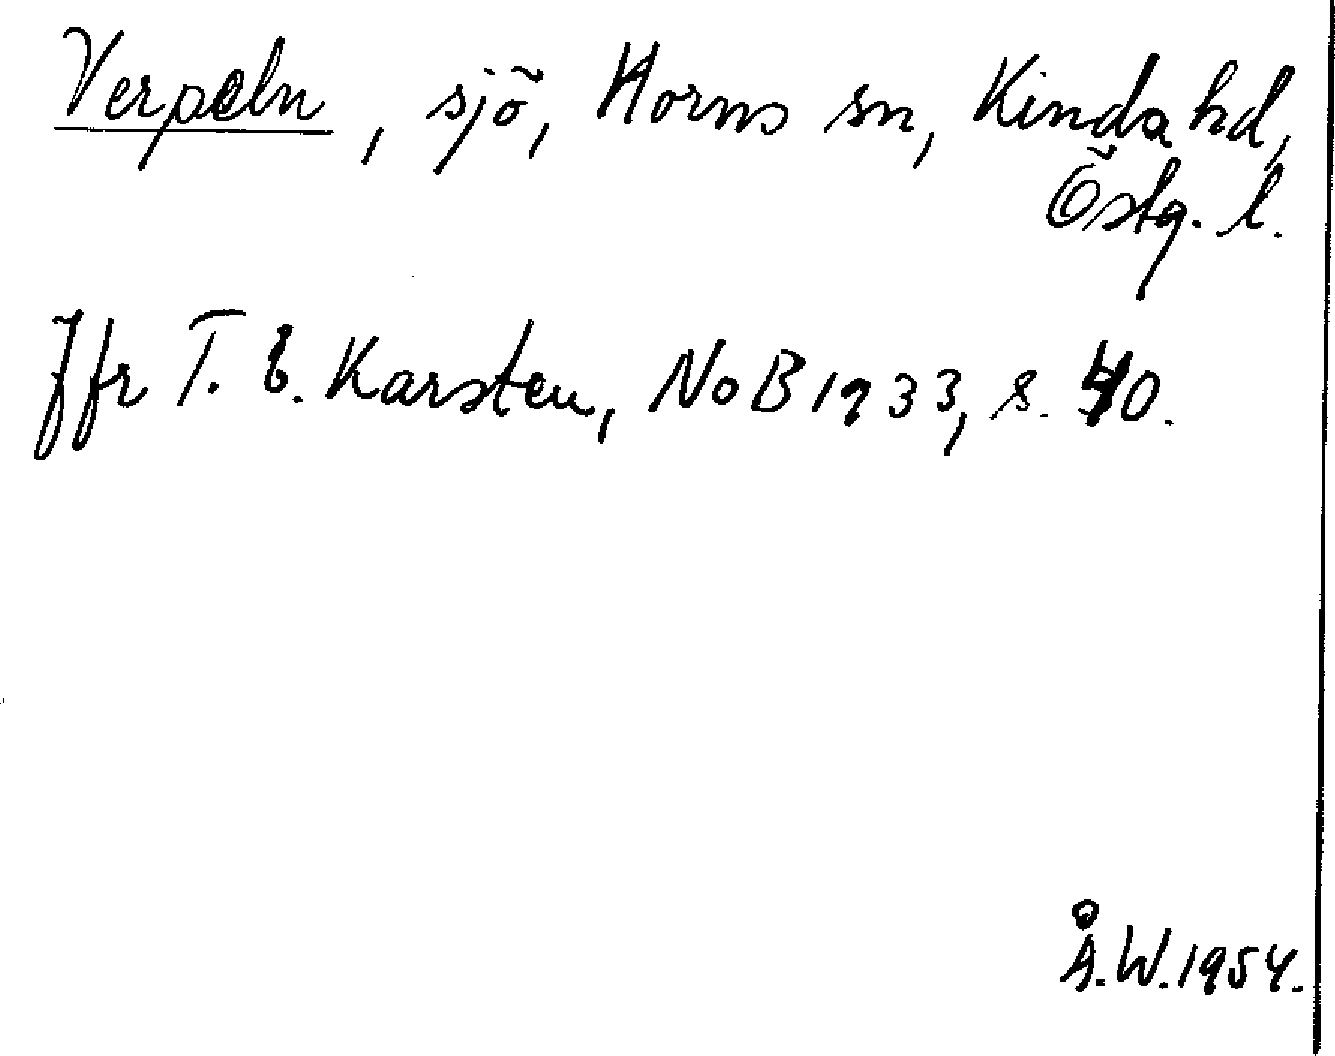 Verpeln, sjö, Horns sn, Kinda hd,
Östg. l.
Jfr T. E. Karsten, NoB 1933, s. 40.
Å.W. 1954.